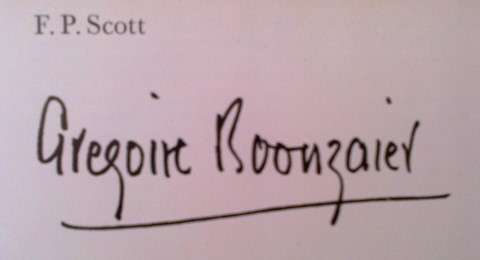 F. P. Scott
Gregoire Boonzaier